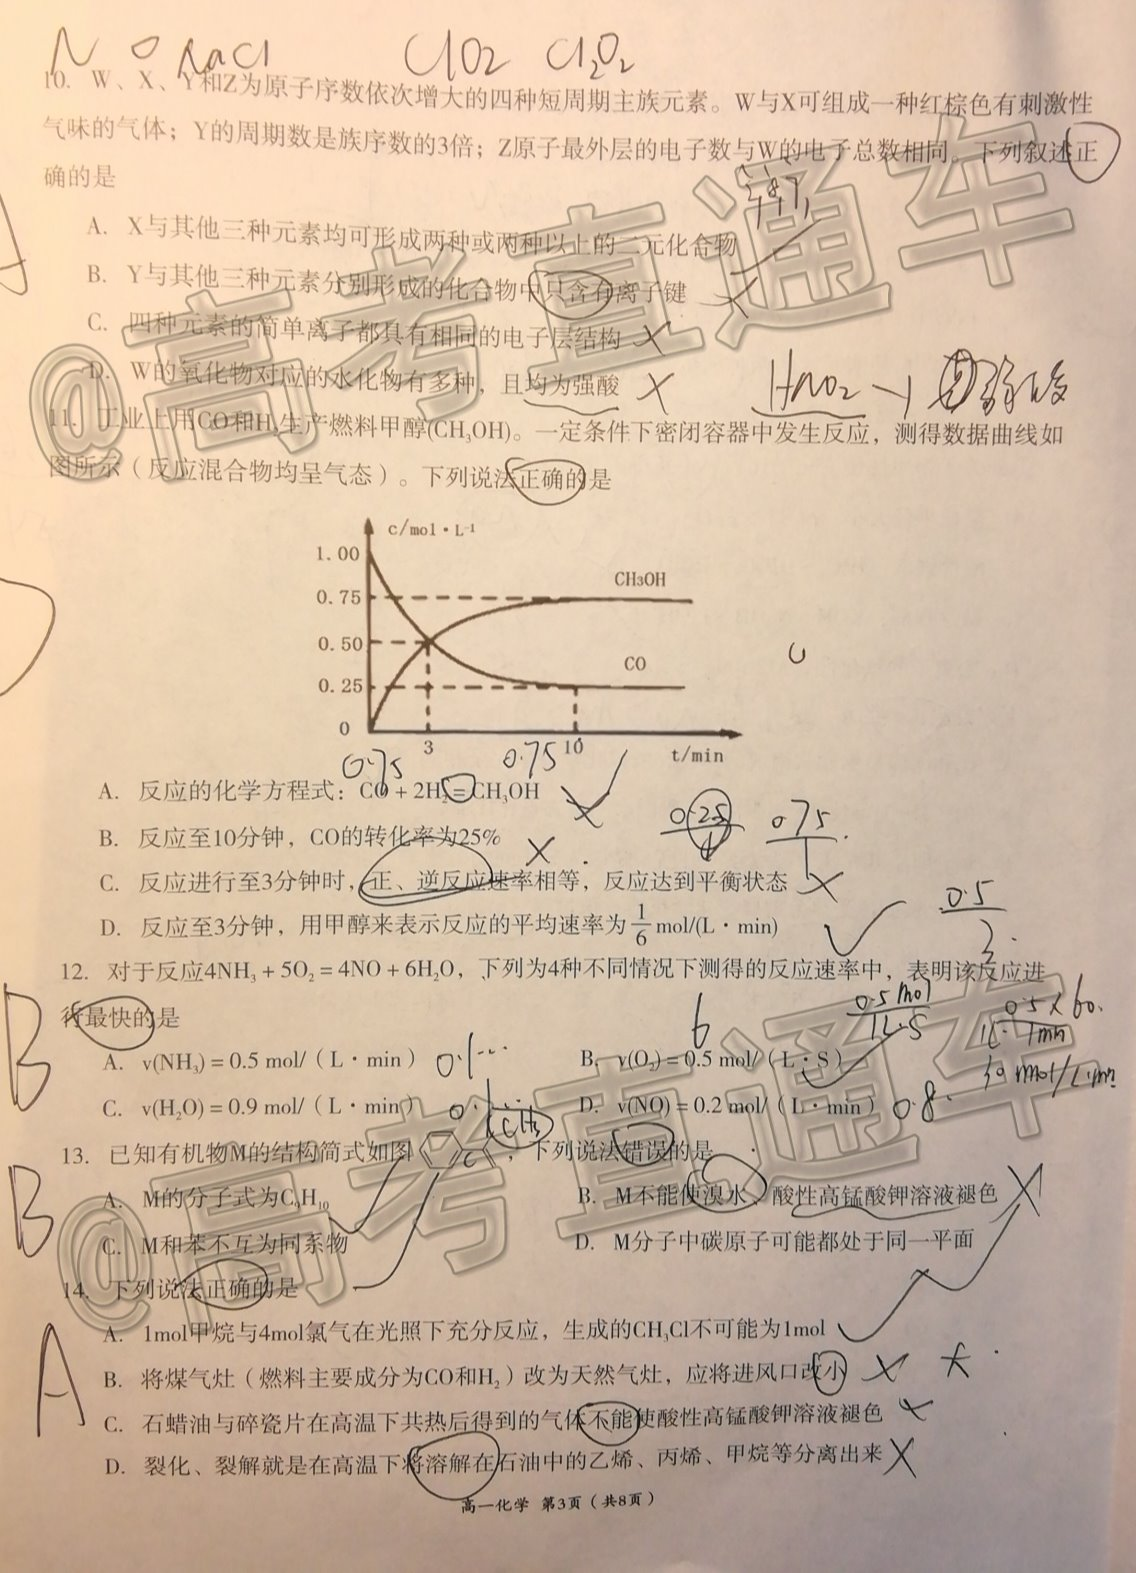 N O NaCl ClO2 Cl2O2
10. W、X、Y和Z为原子序数依次增大的四种短周期主族元素。W与X可组成一种红棕色有刺激性
气味的气体；Y的周期数是族序数的3倍；Z原子最外层的电子数与W的电子总数相同。下列叙述正
确的是
A. X与其他三种元素均可形成两种或两种以上的二元化合物
B. Y与其他三种元素分别形成的化合物中只含有离子键
C. 四种元素的简单离子都具有相同的电子层结构
D. W的氧化物对应的水化物有多种，且均为强酸
HNO2
11. 工业上用CO和H2生产燃料甲醇(CH3OH)。一定条件下密闭容器中发生反应，测得数据曲线如
图所示（反应混合物均呈气态）。下列说法正确的是
c/mol·L-1
1.00
CH3OH
0.75
0.50
CO
0.25
0
3
10
t/min
0.75 0.75
A. 反应的化学方程式：CO + 2H2 = CH3OH
B. 反应至10分钟，CO的转化率为25%
0.25 0.75
C. 反应进行至3分钟时，正、逆反应速率相等，反应达到平衡状态
D. 反应至3分钟，用甲醇来表示反应的平均速率为1/6 mol/(L·min)
0.5
3
12. 对于反应4NH3 + 5O2 = 4NO + 6H2O，下列为4种不同情况下测得的反应速率中，表明该反应进
行最快的是
B
A. v(NH3) = 0.5 mol/（L·min） 0.1...
B. v(O2) = 0.5 mol/（L·S）
6
0.5mol
1L·S
0.5×60
1L·1min
30mol/L·min
C. v(H2O) = 0.9 mol/（L·min） 0.1...
D. v(NO) = 0.2 mol/（L·min） 0.8
13. 已知有机物M的结构简式如图，下列说法错误的是
B
A. M的分子式为C9H10
B. M不能使溴水、酸性高锰酸钾溶液褪色
C. M和苯不互为同系物
D. M分子中碳原子可能都处于同一平面
14. 下列说法正确的是
A
A. 1mol甲烷与4mol氯气在光照下充分反应，生成的CH3Cl不可能为1mol
B. 将煤气灶（燃料主要成分为CO和H2）改为天然气灶，应将进风口改小 大
C. 石蜡油与碎瓷片在高温下共热后得到的气体不能使酸性高锰酸钾溶液褪色
D. 裂化、裂解就是在高温下将溶解在石油中的乙烯、丙烯、甲烷等分离出来
高一化学 第3页（共8页）
@高考直通车
@高考直通车